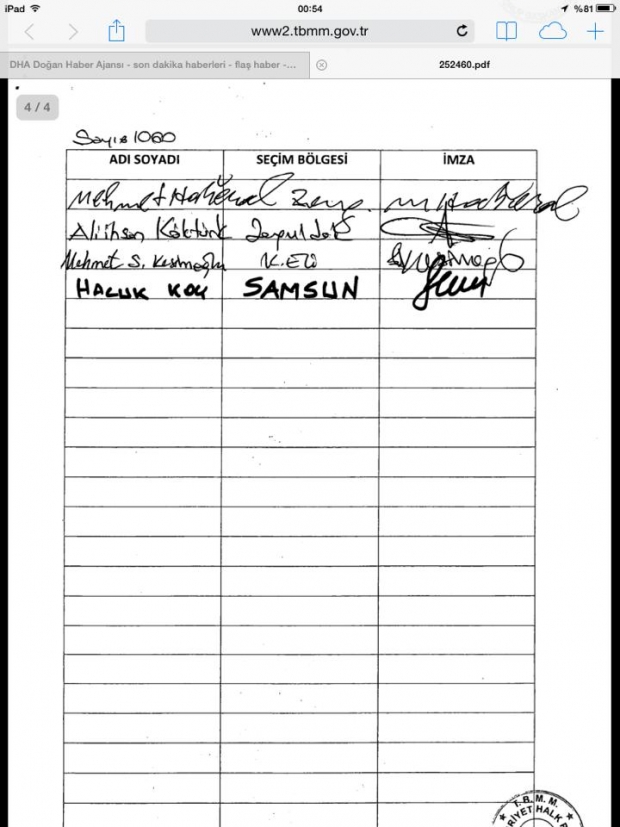 iPad 00:54 %81
www2.tbmm.gov.tr
DHA Doğan Haber Ajansı - son dakika haberleri - flaş haber -... 252460.pdf
4 / 4
Sayı: 1060
ADI SOYADI SEÇİM BÖLGESİ İMZA
Mehmet Haberal Zong.
Ali İhsan Köktürk Zonguldak
Mehmet S. Kesimoğlu K.Eli
HALUK KOÇ SAMSUN
T.B.M.M.
RİYET HALK P